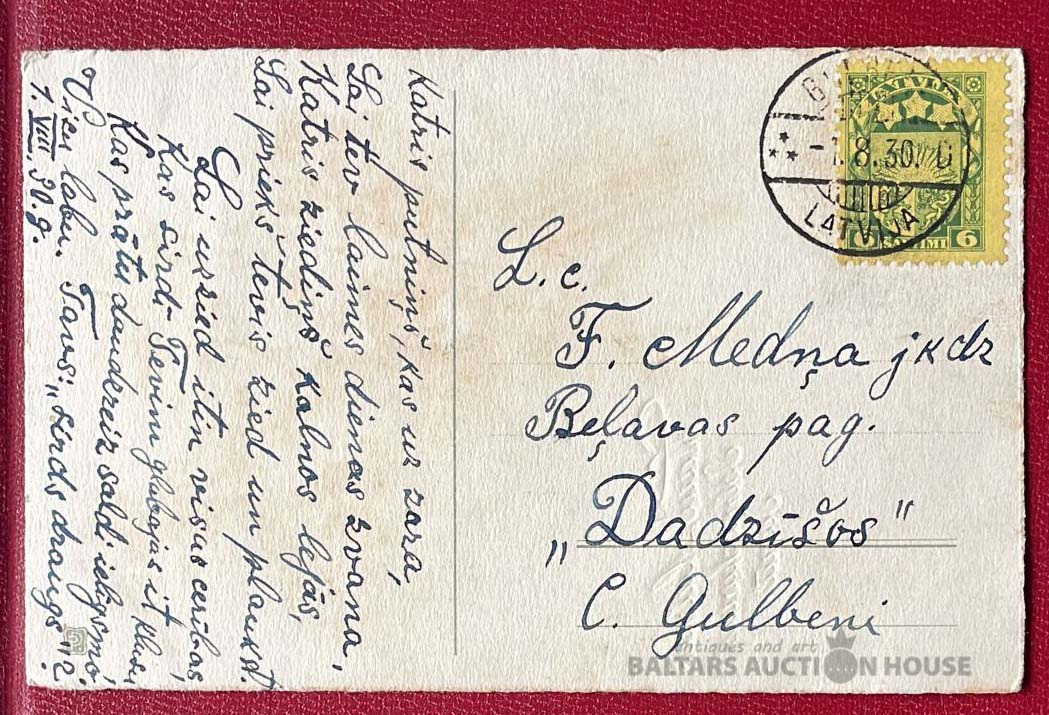 Katris putniņš, kas uz zara,
Lai tev laimes dienas zvana,
Katris ziediņš kalnos lejās,
Lai prieks tevis zied un plaukst.
Lai uzzied itin visas cerības
Kas sirdi Tevim glabajas it klusu,
Kas prātu daudzreiz saldi
Visu labu. Tavs: „Sirds draugs"?
1. VIII. 30. g.
LATVIJA
-1.8.30
LATVIJA
6 SANTIMI 6
L. c.
F. Medņa jkdz
Beļavas pag.
„Dadzīšos"
C. Gulbeni
antiques and art
BALTARS AUCTION HOUSE